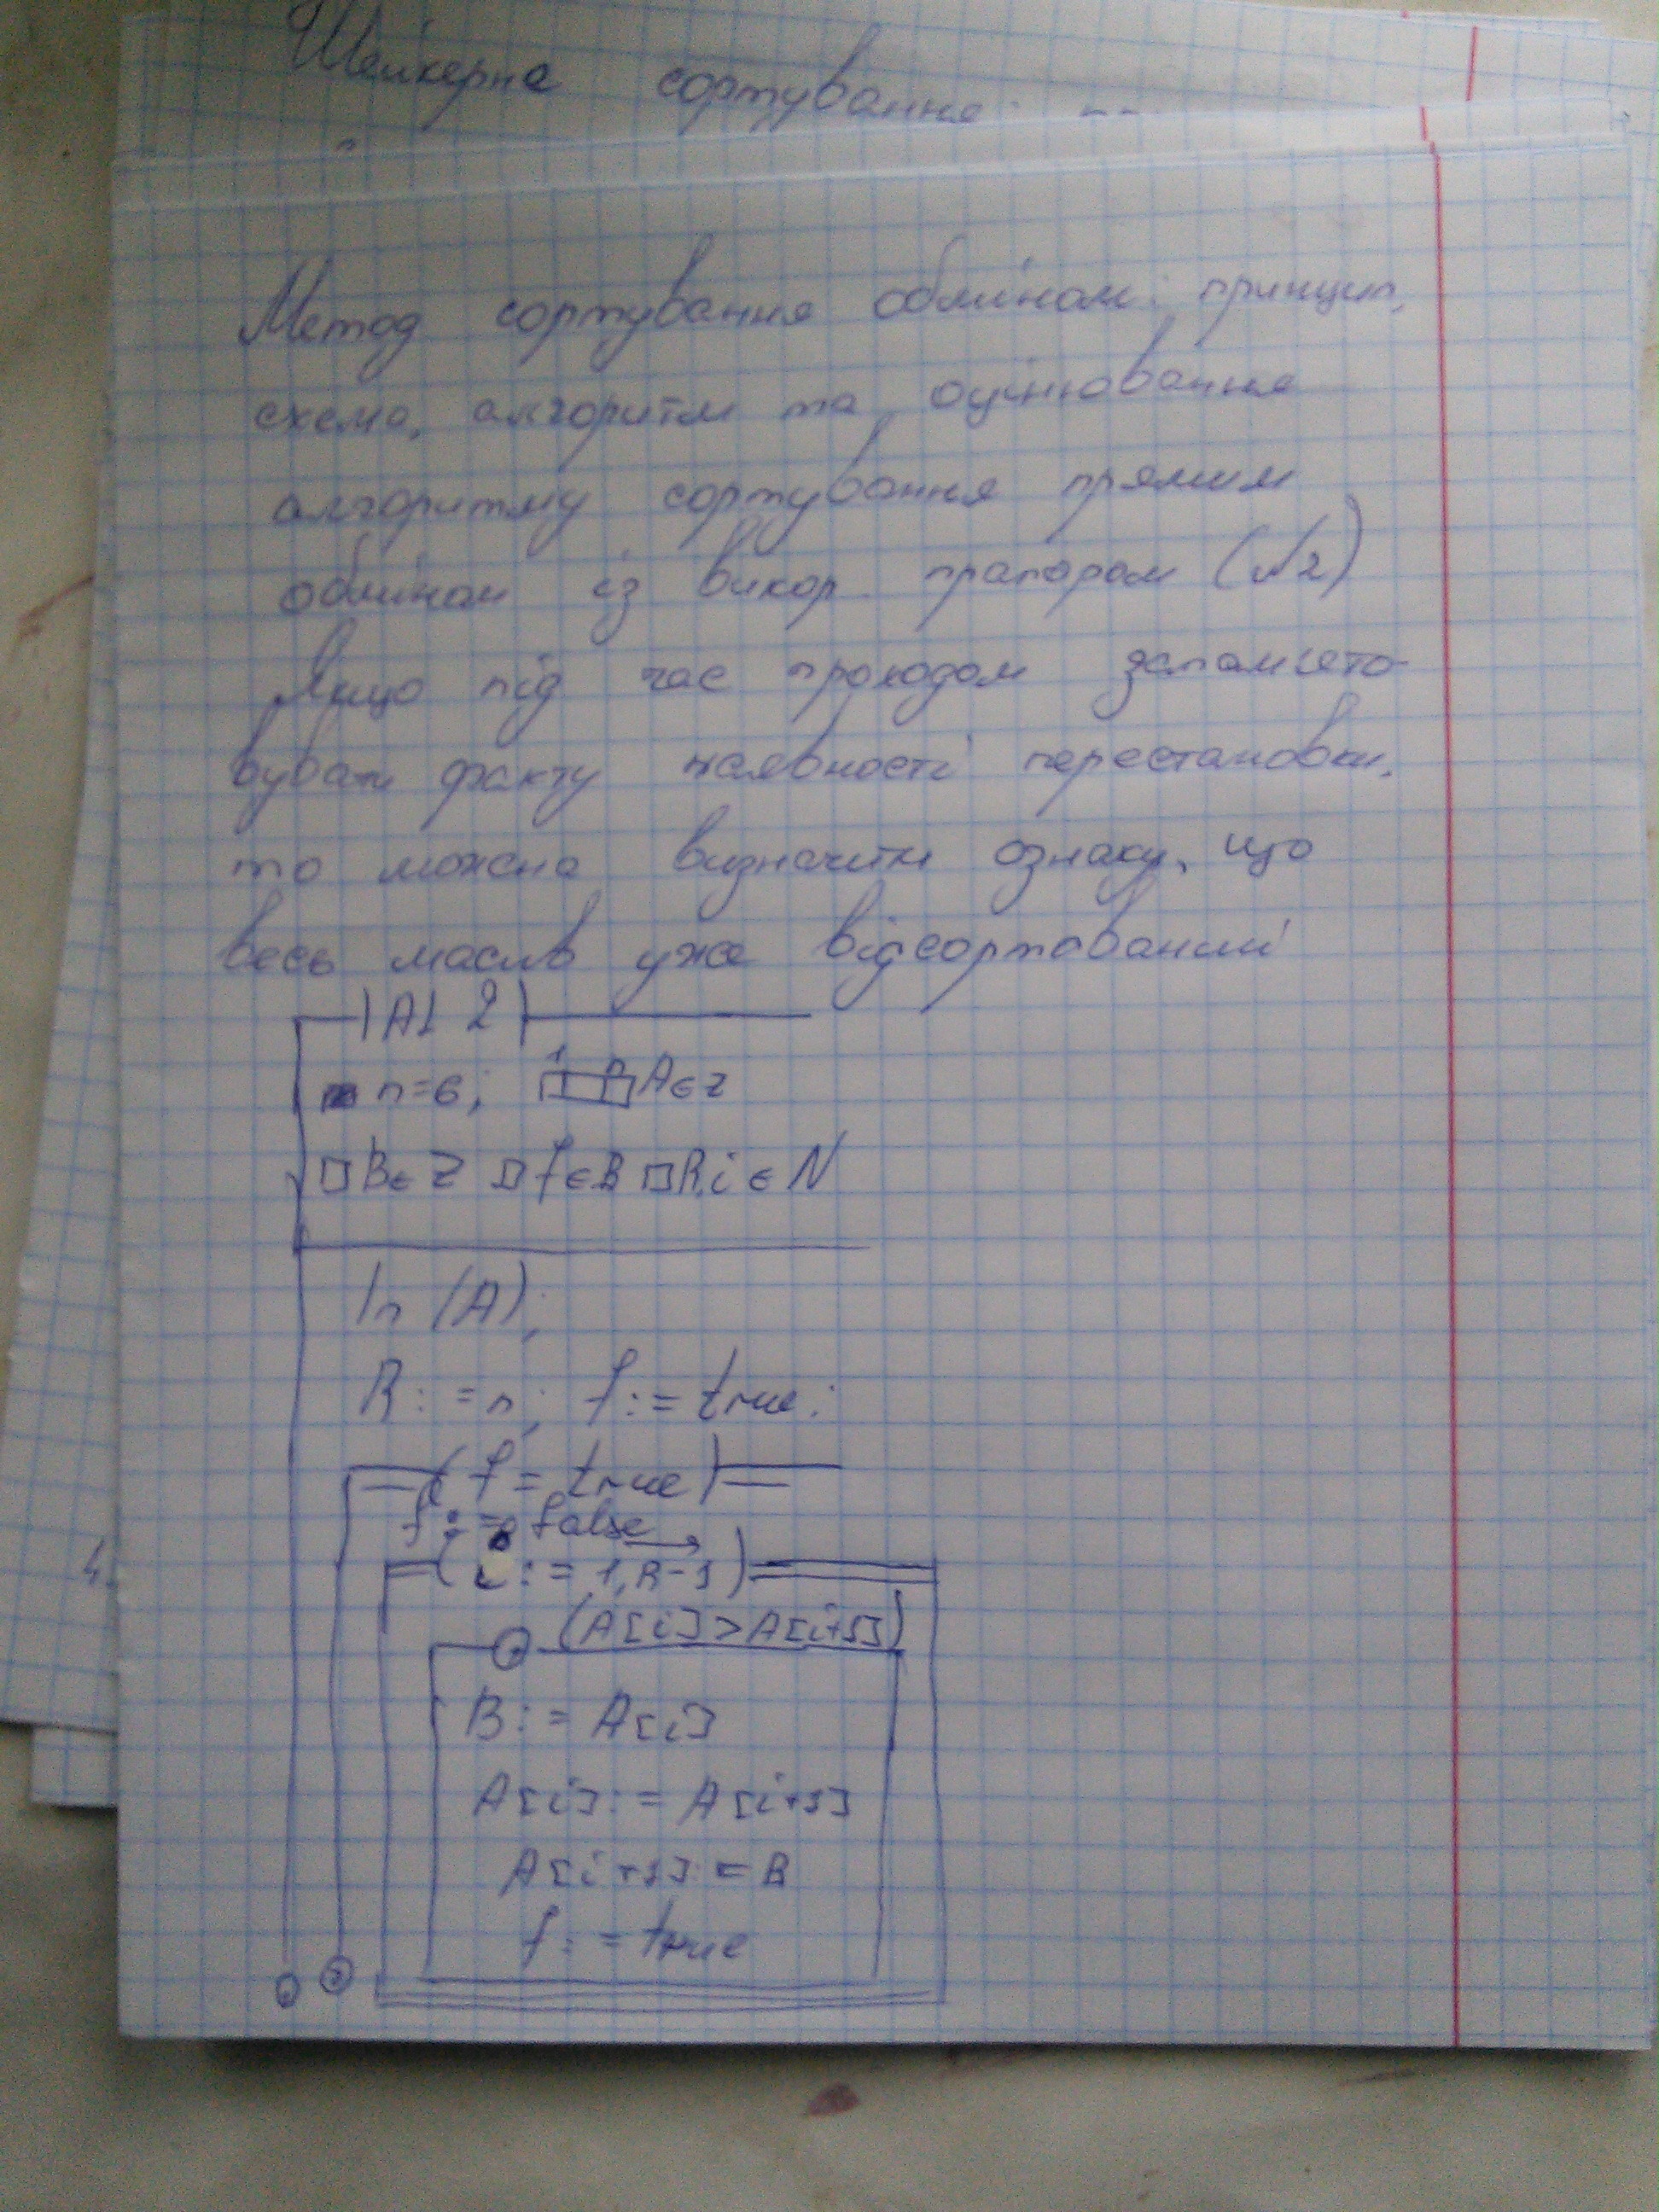 Шейкерне сортування
Метод сортування обміном: принцип,
схема, алгоритм та оцінювання
алгоритму сортування прямим
обміном із викор. прапором (№2)
Якщо під час проходом запам'ято-
вувати факту наявності перестановки,
то можна визначити ознаку, що
весь масив уже відсортований
AL 2
n=6; 1 n A∈Z
B∈Z f∈B R,i∈N
In (A);
R:=n; f:=true;
(f=true)
f:=false
(i:=1,R-1)
(A[i]>A[i+1])
B:=A[i]
A[i]:=A[i+1]
A[i+1]:=B
f:=true
4.